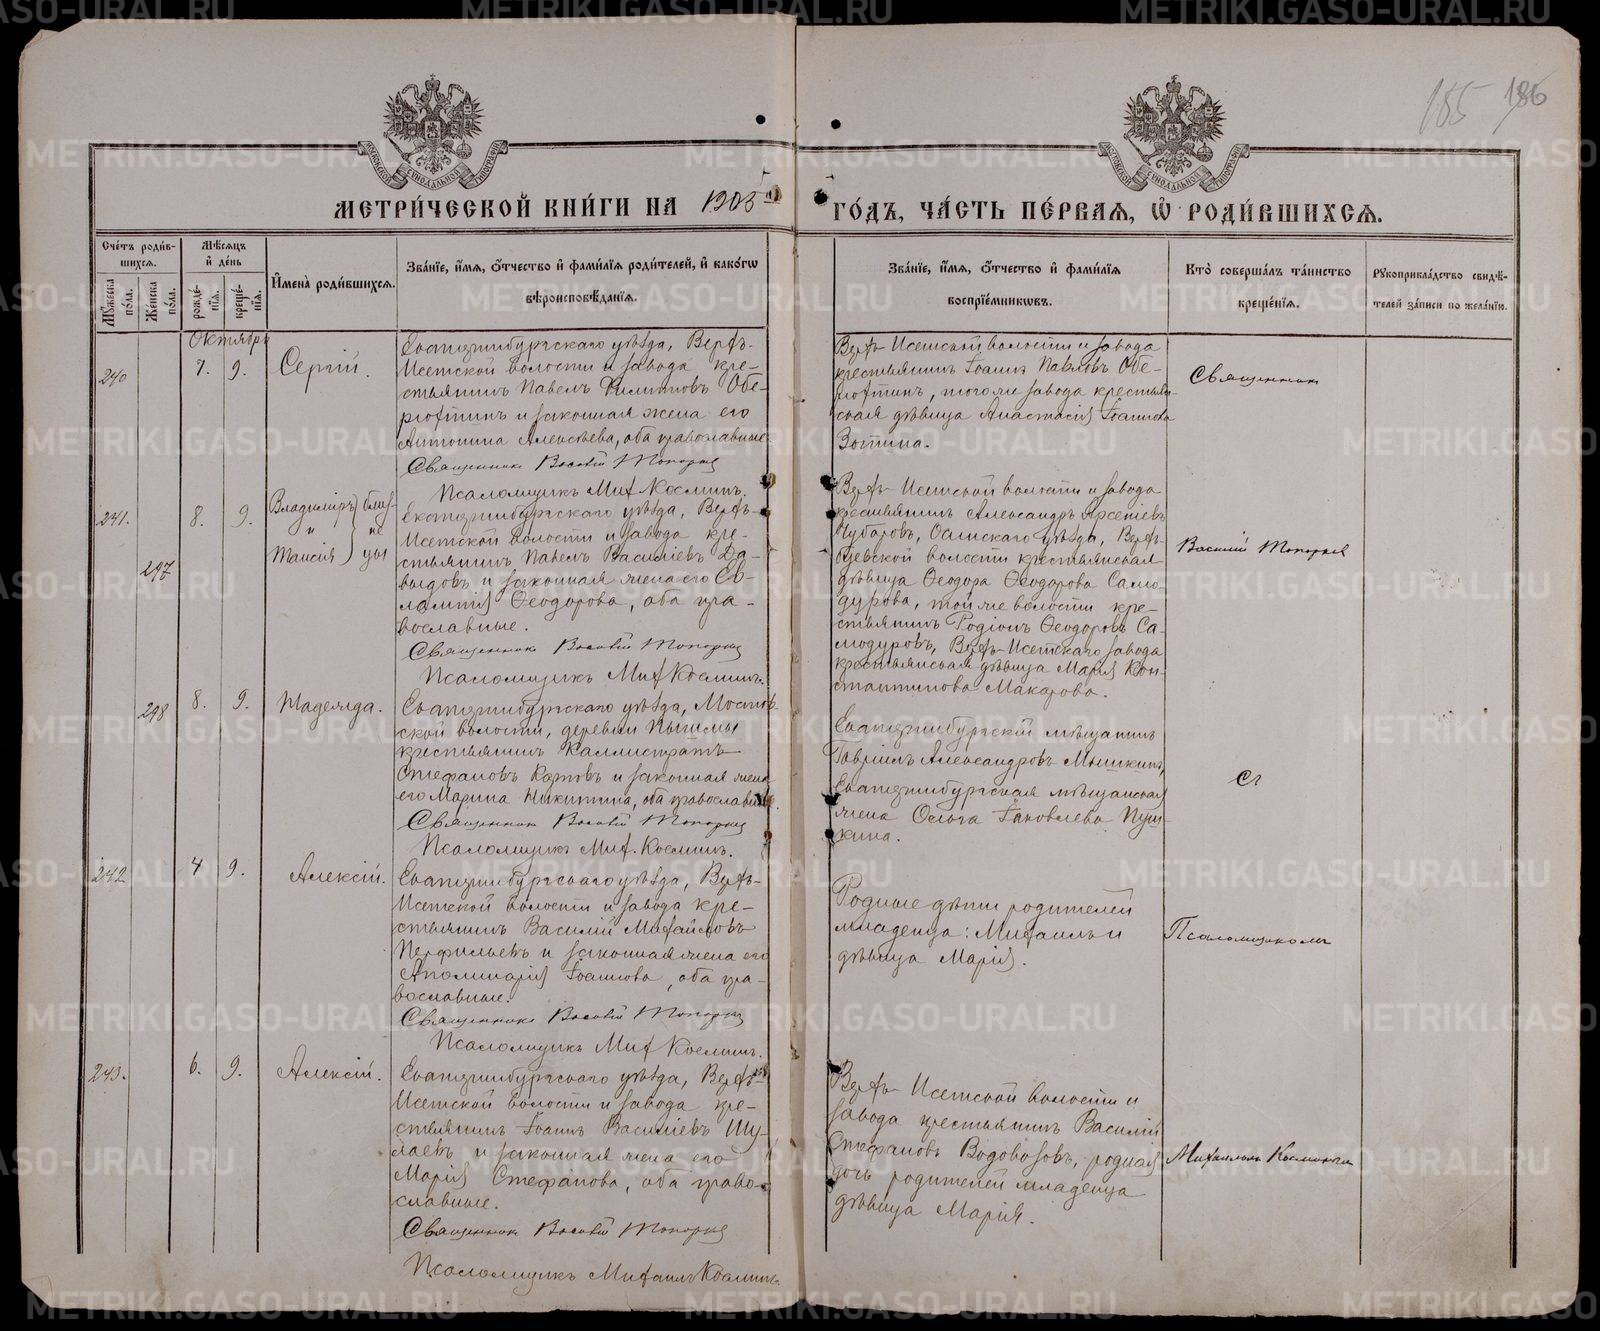 METRIKI.GASO-URAL.RU
155 186
МОСКОВСКОЙ СѴНОДАЛЬНОЙ ТИПОГРАФІИ
МЕТРИ́ЧЕСКОЙ КНИ́ГИ НА 1905 ГО́ДЪ, ЧА́СТЬ ПЕ́РВАЯ, Ѡ РОДИ́ВШИХСЯ.
Сче́тъ роди́в-
шихся.
Мꙋ́жеска по́ла.
Же́нска по́ла.
Мѣ́сяцъ
и҆ де́нь
рожде́-
нїя.
креще́-
нїя.
И҆мена̀ роди́вшихся.
Зва́нїе, и҆́мя, ѻ҆́тчество и҆ фами́лїя роди́телей, и҆ како́гѡ
вѣроисповѣ́данїя.
Зва́нїе, и҆́мя, ѻ҆́тчество и҆ фами́лїя
воспрїе́мниковъ.
Кто̀ соверша́лъ та́инство
креще́нїя.
Рꙋкоприкла́дство свидѣ́-
телей за́писи по жела́нїю.
Октябрь
240
7. 9.
Сергій.
Екатеринбургскаго уѣзда, Верхъ-
Исетской волости и завода кре-
стьянинъ Павелъ Филипповъ Обе-
рюхтинъ и законная жена его
Антонина Алексѣева, оба православные.
Священникъ Василій Топорковъ
Псаломщикъ Мих. Косминъ.
Верхъ-Исетской волости и завода
крестьянинъ Іоаннъ Павловъ Обе-
рюхтинъ, того же завода крестьян-
ская дѣвица Анастасія Іоаннова
Зотина.
Священникъ
241.
297
8. 9.
Владиміръ
и
Таисія
близ-
не
цы
Екатеринбургскаго уѣзда, Верхъ-
Исетской волости и завода кре-
стьянинъ Павелъ Василіевъ Да-
выдовъ и законная жена его Ев-
лампія Ѳеодорова, оба пра-
вославные.
Священникъ Василій Топорковъ
Псаломщикъ Мих. Косминъ.
Верхъ-Исетской волости и завода
крестьянинъ Александръ Арсеніевъ
Чубаровъ, Осинскаго уѣзда, Верхъ-
крестьянская
дѣвица Ѳеодора Ѳеодорова Само-
дурова, той же волости кре-
стьянинъ Родіонъ Ѳеодоровъ Са-
модуровъ, Верхъ-Исетскаго завода
крестьянская дѣвица Марія Кон-
стантинова Макарова.
Василій Топорковъ
298
8. 9.
Надежда.
Екатеринбургскаго уѣзда, Мостов-
ской волости, деревни Пышмы
крестьянинъ Каллистратъ
Стефановъ и законная жена
его Марина Никитина, оба православные.
Священникъ Василій Топорковъ
Псаломщикъ Мих. Косминъ.
Екатеринбургскій мѣщанинъ
Гавріилъ Александровъ Мышкинъ,
Екатеринбургская мѣщанская
жена Ольга Іаковлева Пуш-
кина.
Съ
242
4 9.
Алексій.
Екатеринбургскаго уѣзда, Верхъ-
Исетской волости и завода кре-
стьянинъ Василій Михайловъ
Перфильевъ и законная жена его
Аполинарія Іоаннова, оба пра-
вославные.
Священникъ Василій Топорковъ
Псаломщикъ Мих Косминъ.
Родные дѣти родителей
младенца: Михаилъ и
дѣвица Марія.
Псаломщикомъ
243.
6. 9.
Алексій.
Екатеринбургскаго уѣзда, Верхъ-
Исетской волости и завода кре-
стьянинъ Іоаннъ Василіевъ Шу-
лаевъ и законная жена его
Марія Стефанова, оба право-
славные.
Священникъ Василій Топорковъ
Псаломщикъ Михаилъ Косминъ.
Верхъ-Исетской волости и
завода крестьянинъ Василій
Стефановъ Водовозовъ, родная
дочь родителей младенца
дѣвица Марія.
Михаиломъ Косминымъ